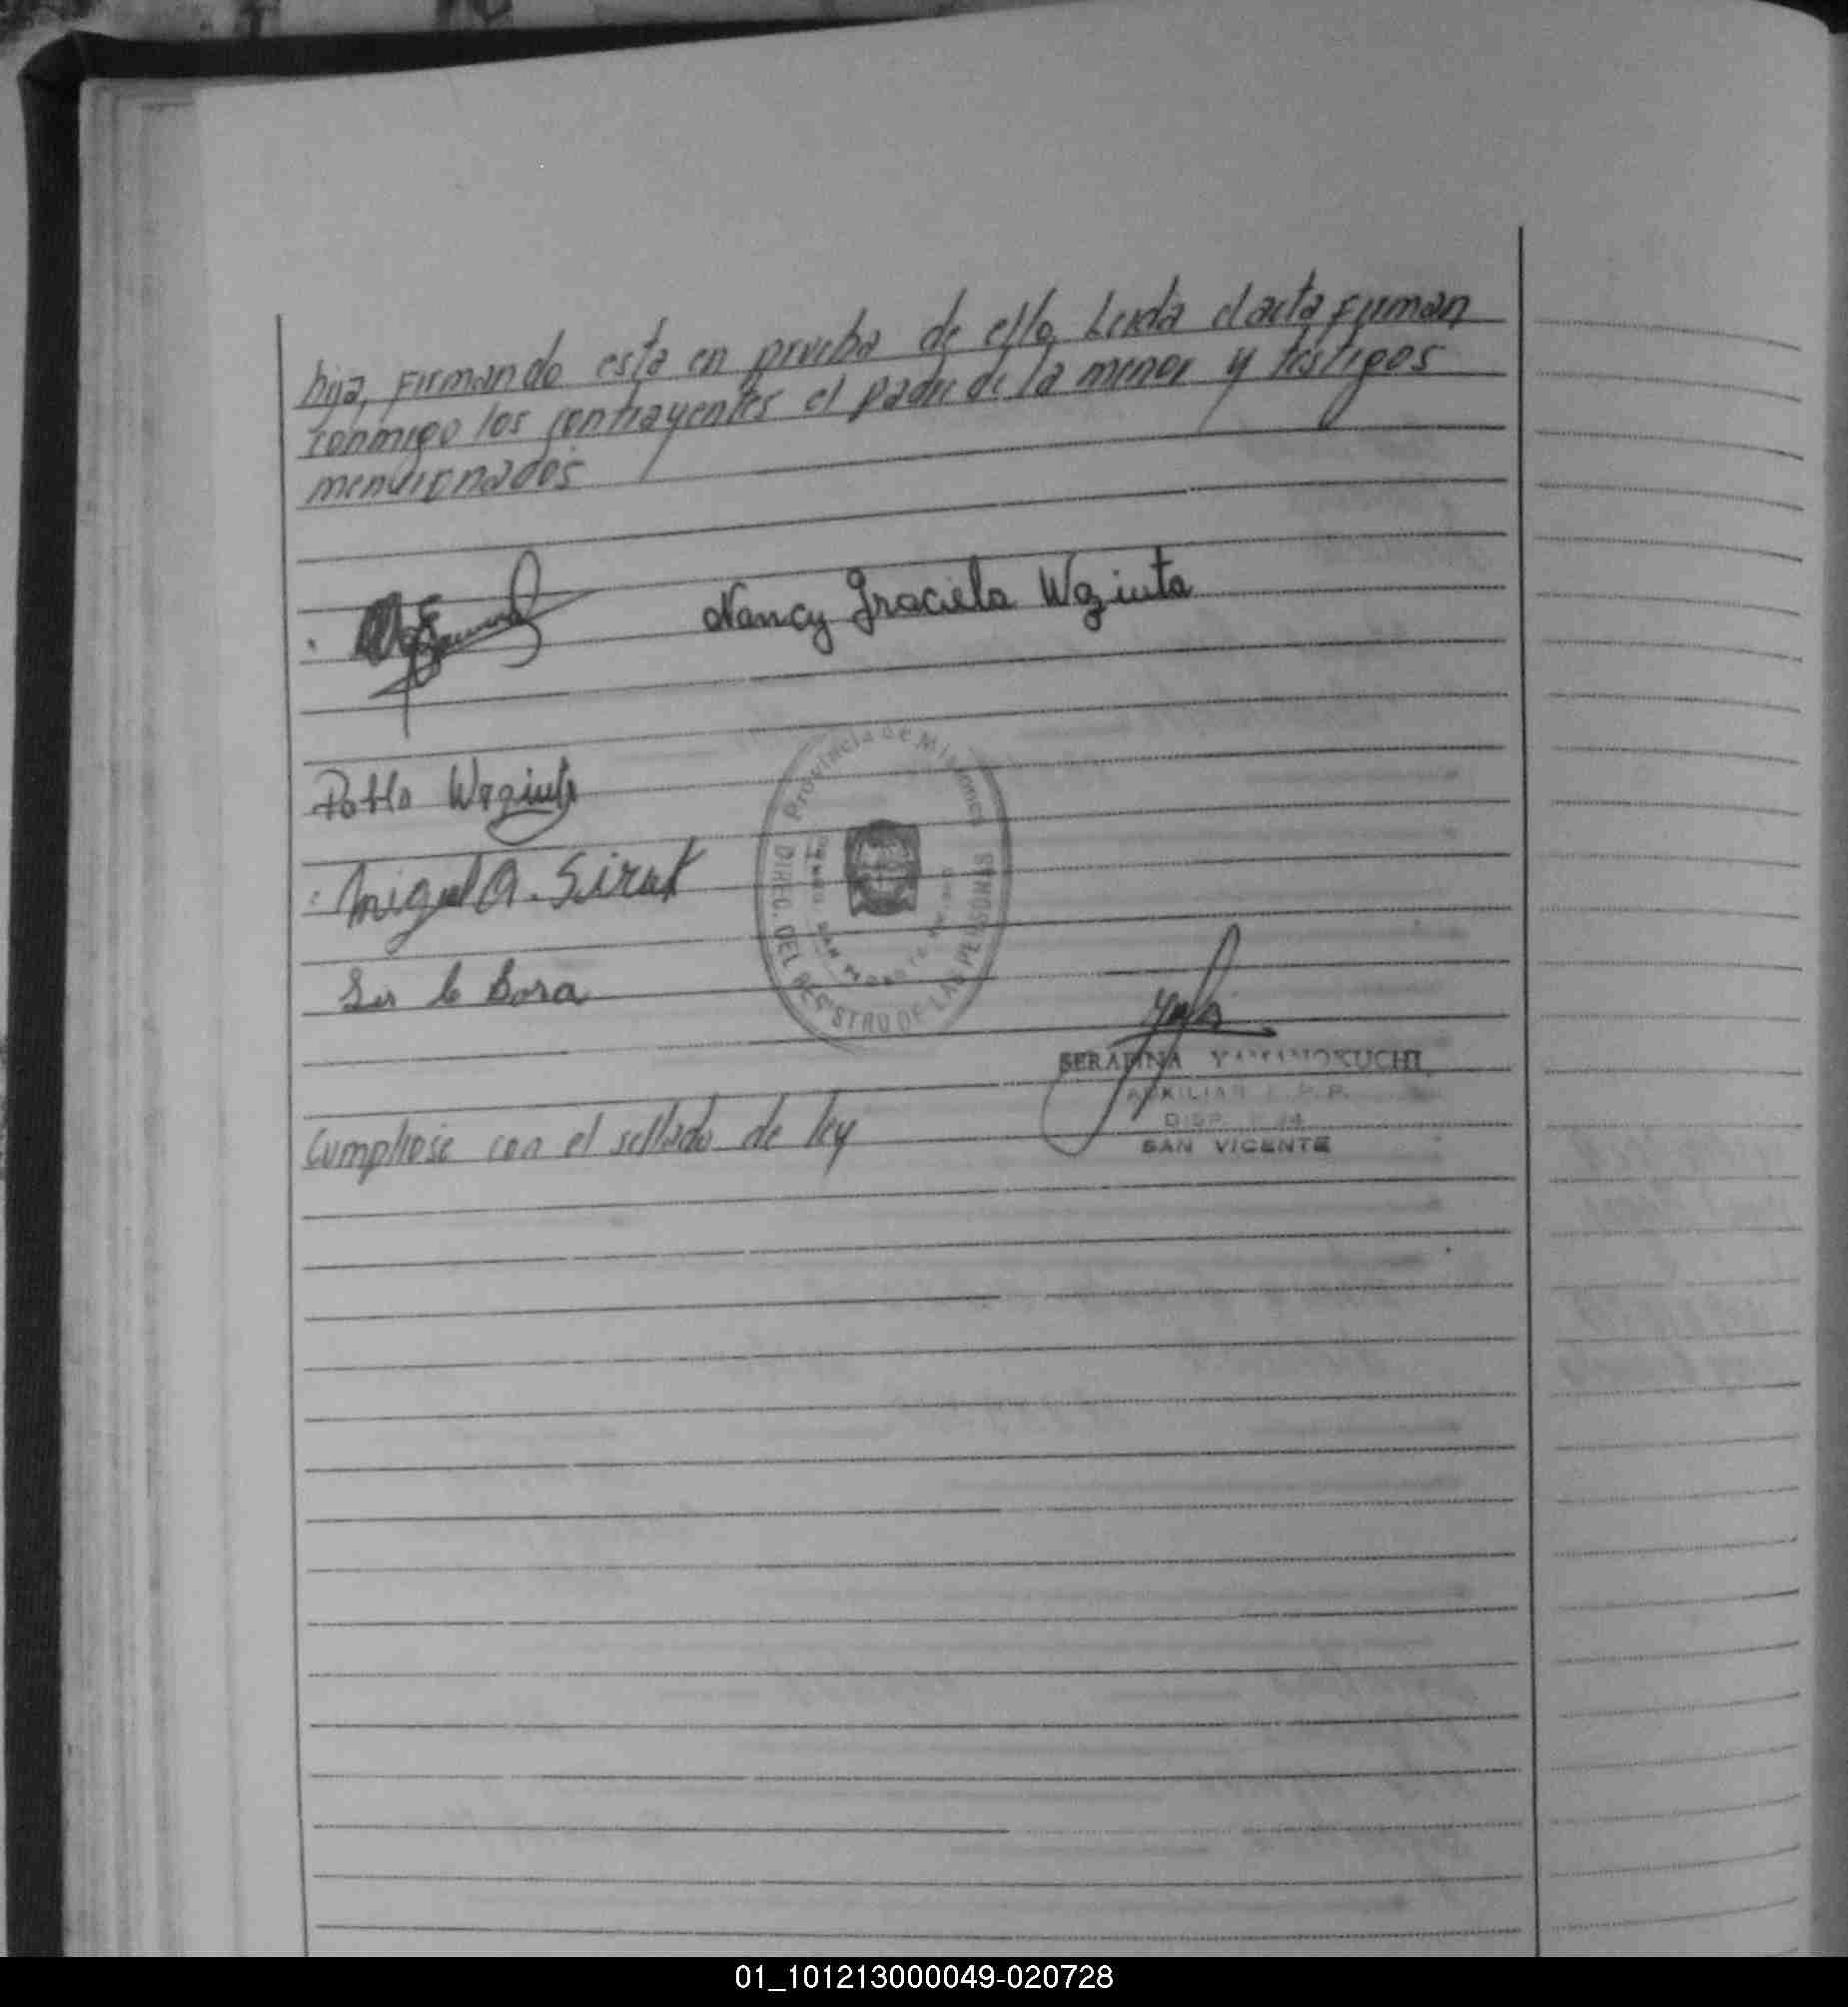 hija, Firmando esta en prueba de ello, Leida el acta Firman
conmigo los contrayentes el padre de la menor y testigos
mencionados
Nancy Graciela Wziuta
Pablo Wziuta
Provincia de Misiones
DIREC. DEL REGISTRO DE LAS PERSONAS
Miguel A. Sirak
SERAFINA YAMANOKUCHI
AUXILIAR
SAN VICENTE
Cumpliose con el sellado de ley
01_101213000049-020728